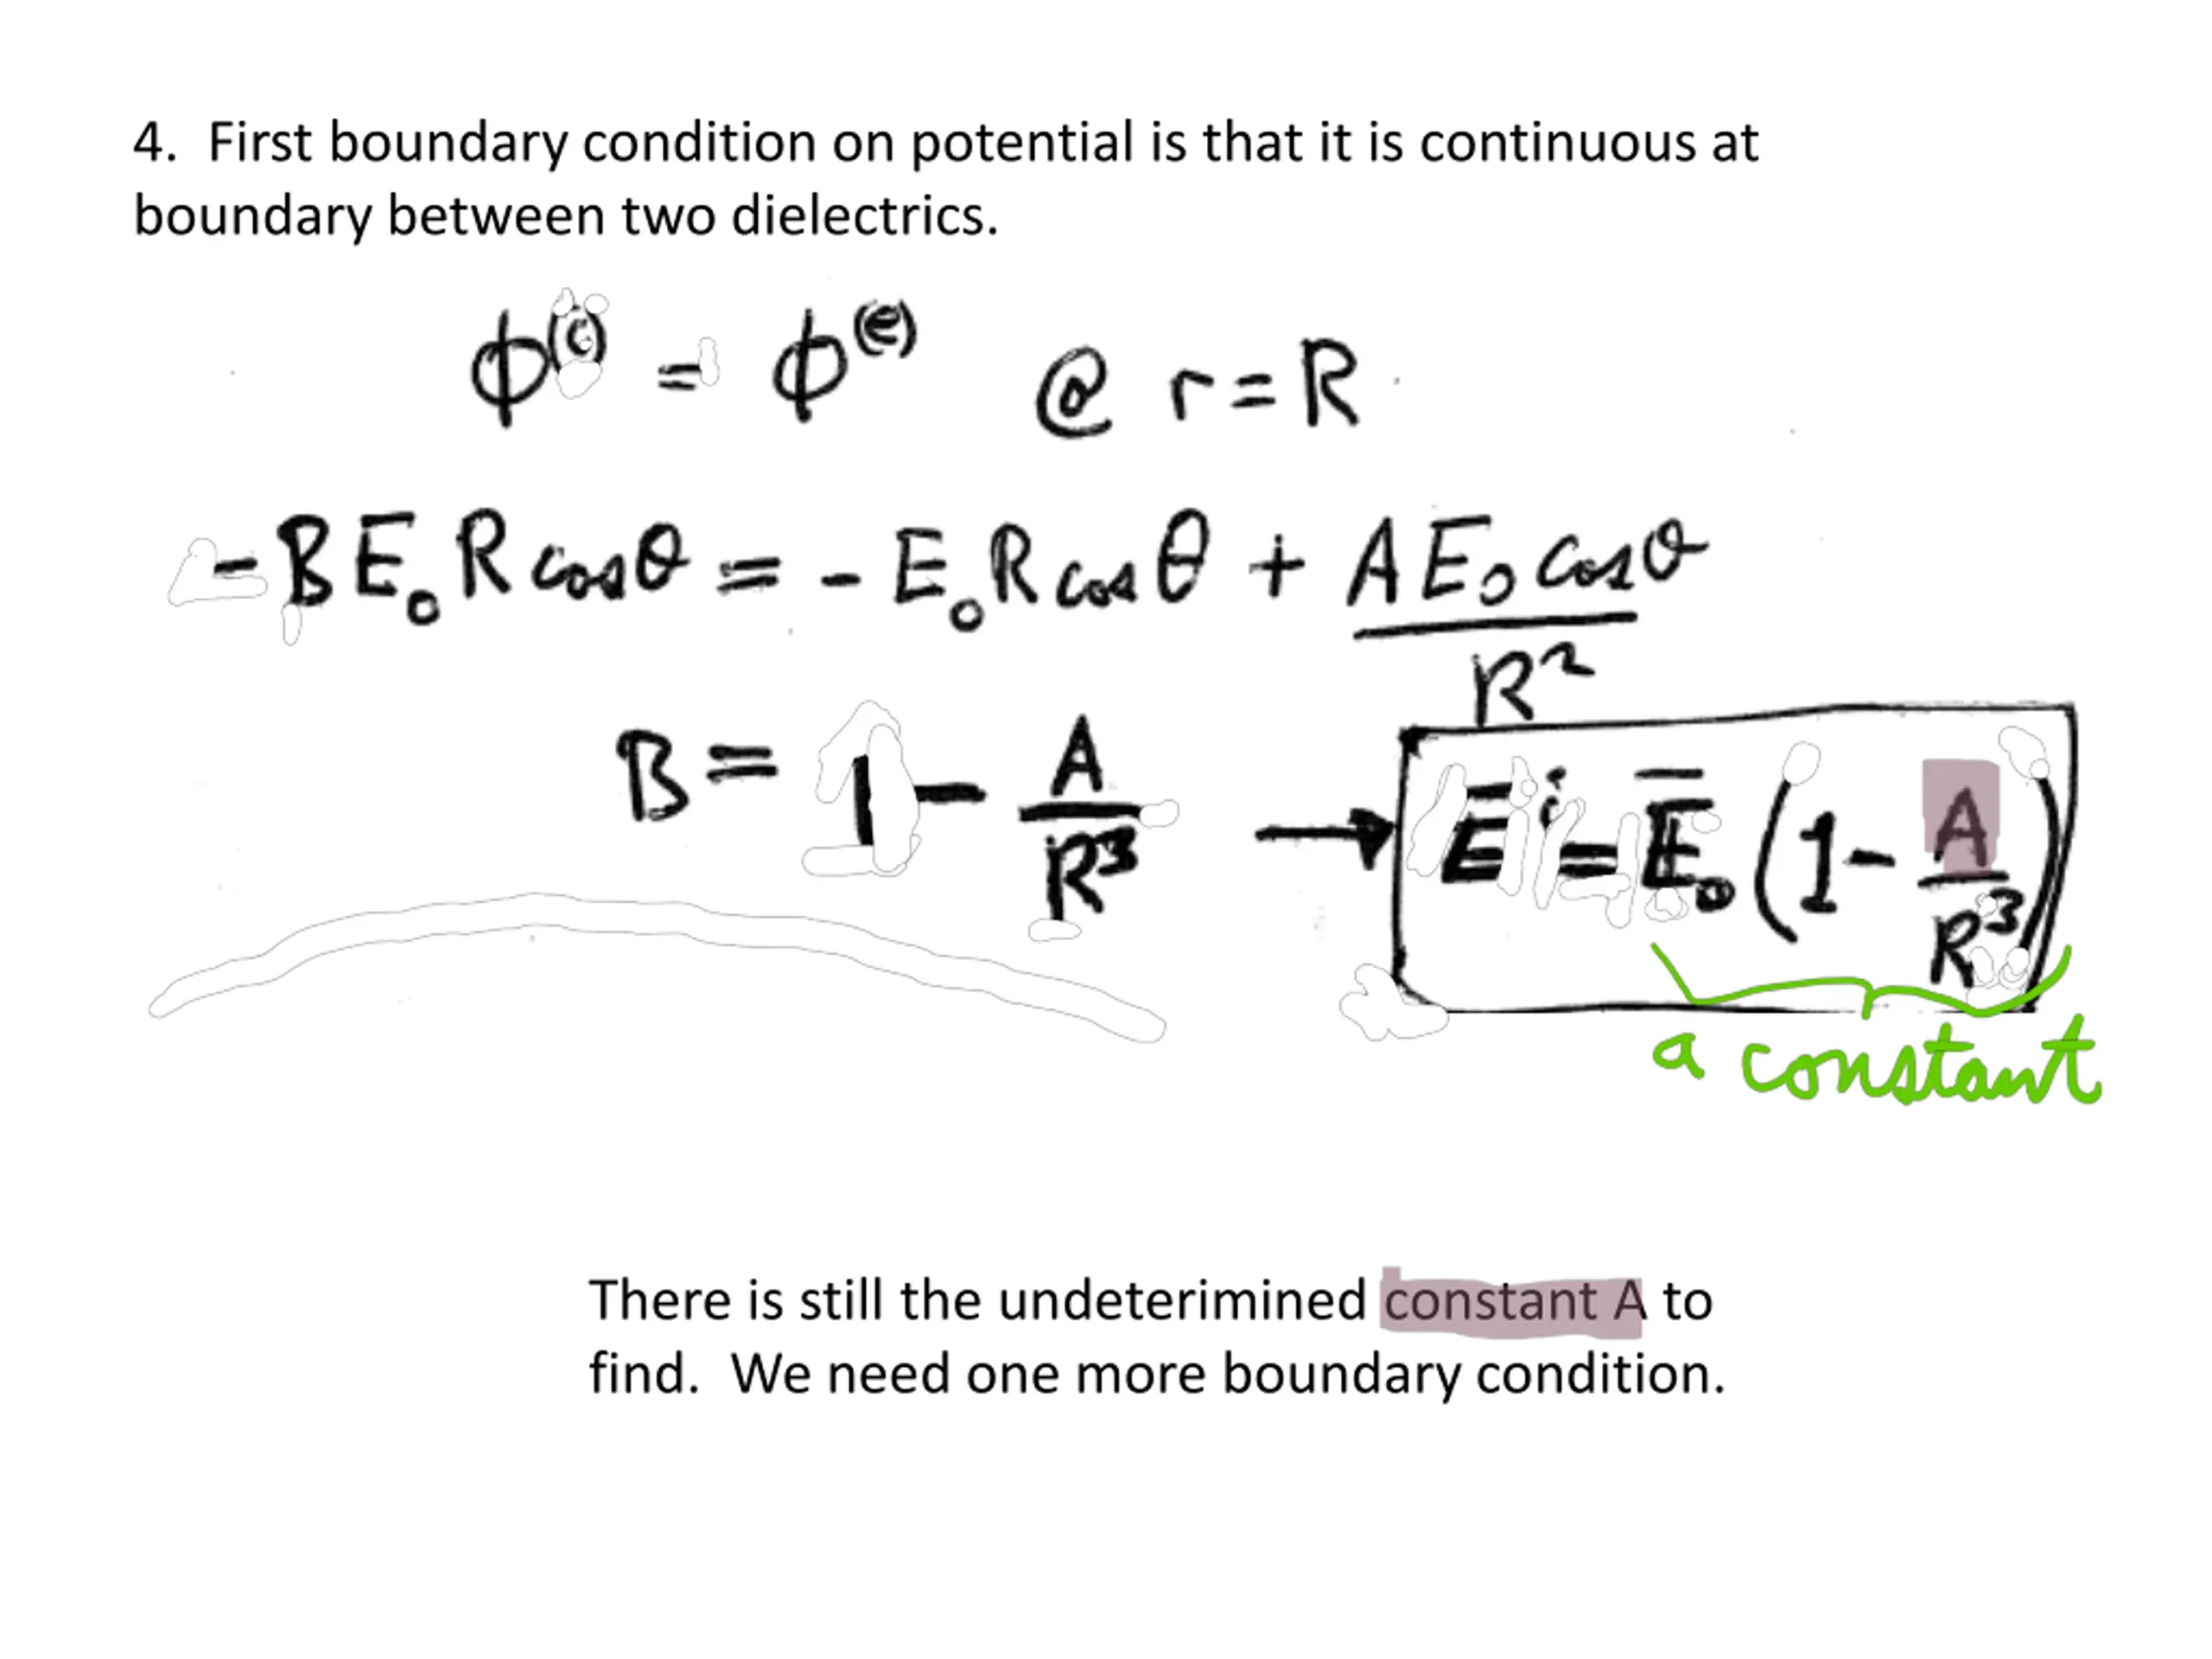 4. First boundary condition on potential is that it is continuous at
boundary between two dielectrics.
ϕ⁽ⁱ⁾ = ϕ⁽ᵉ⁾ @ r = R
- B E₀ R cosθ = - E₀ R cosθ + A E₀ cosθ / R²
B = 1 - A / R³ → E̅ⁱ = E̅₀ (1 - A / R³)
a constant
There is still the undeterimined constant A to
find. We need one more boundary condition.